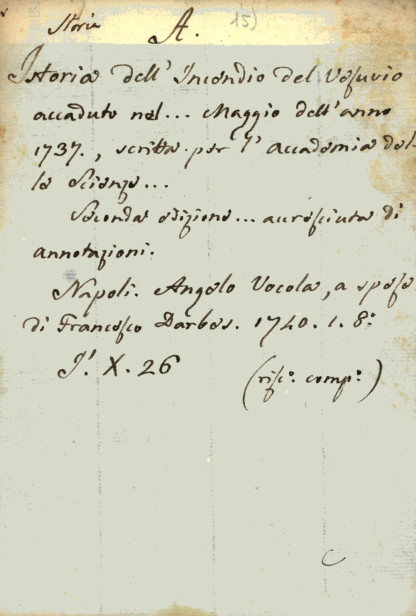 Storia A. 15)
Istoria dell' Incendio del Vesuvio
accaduto nel... Maggio dell'anno
1737., scritta per l' accademia del-
le Scienze...
Seconda edizione... accresciuta di
annotazioni.
Napoli. Angelo Vocola, a spese
di Francesco Darbes. 1740. 1. 8.º
J! X. 26 (risc.º comp.º)
C